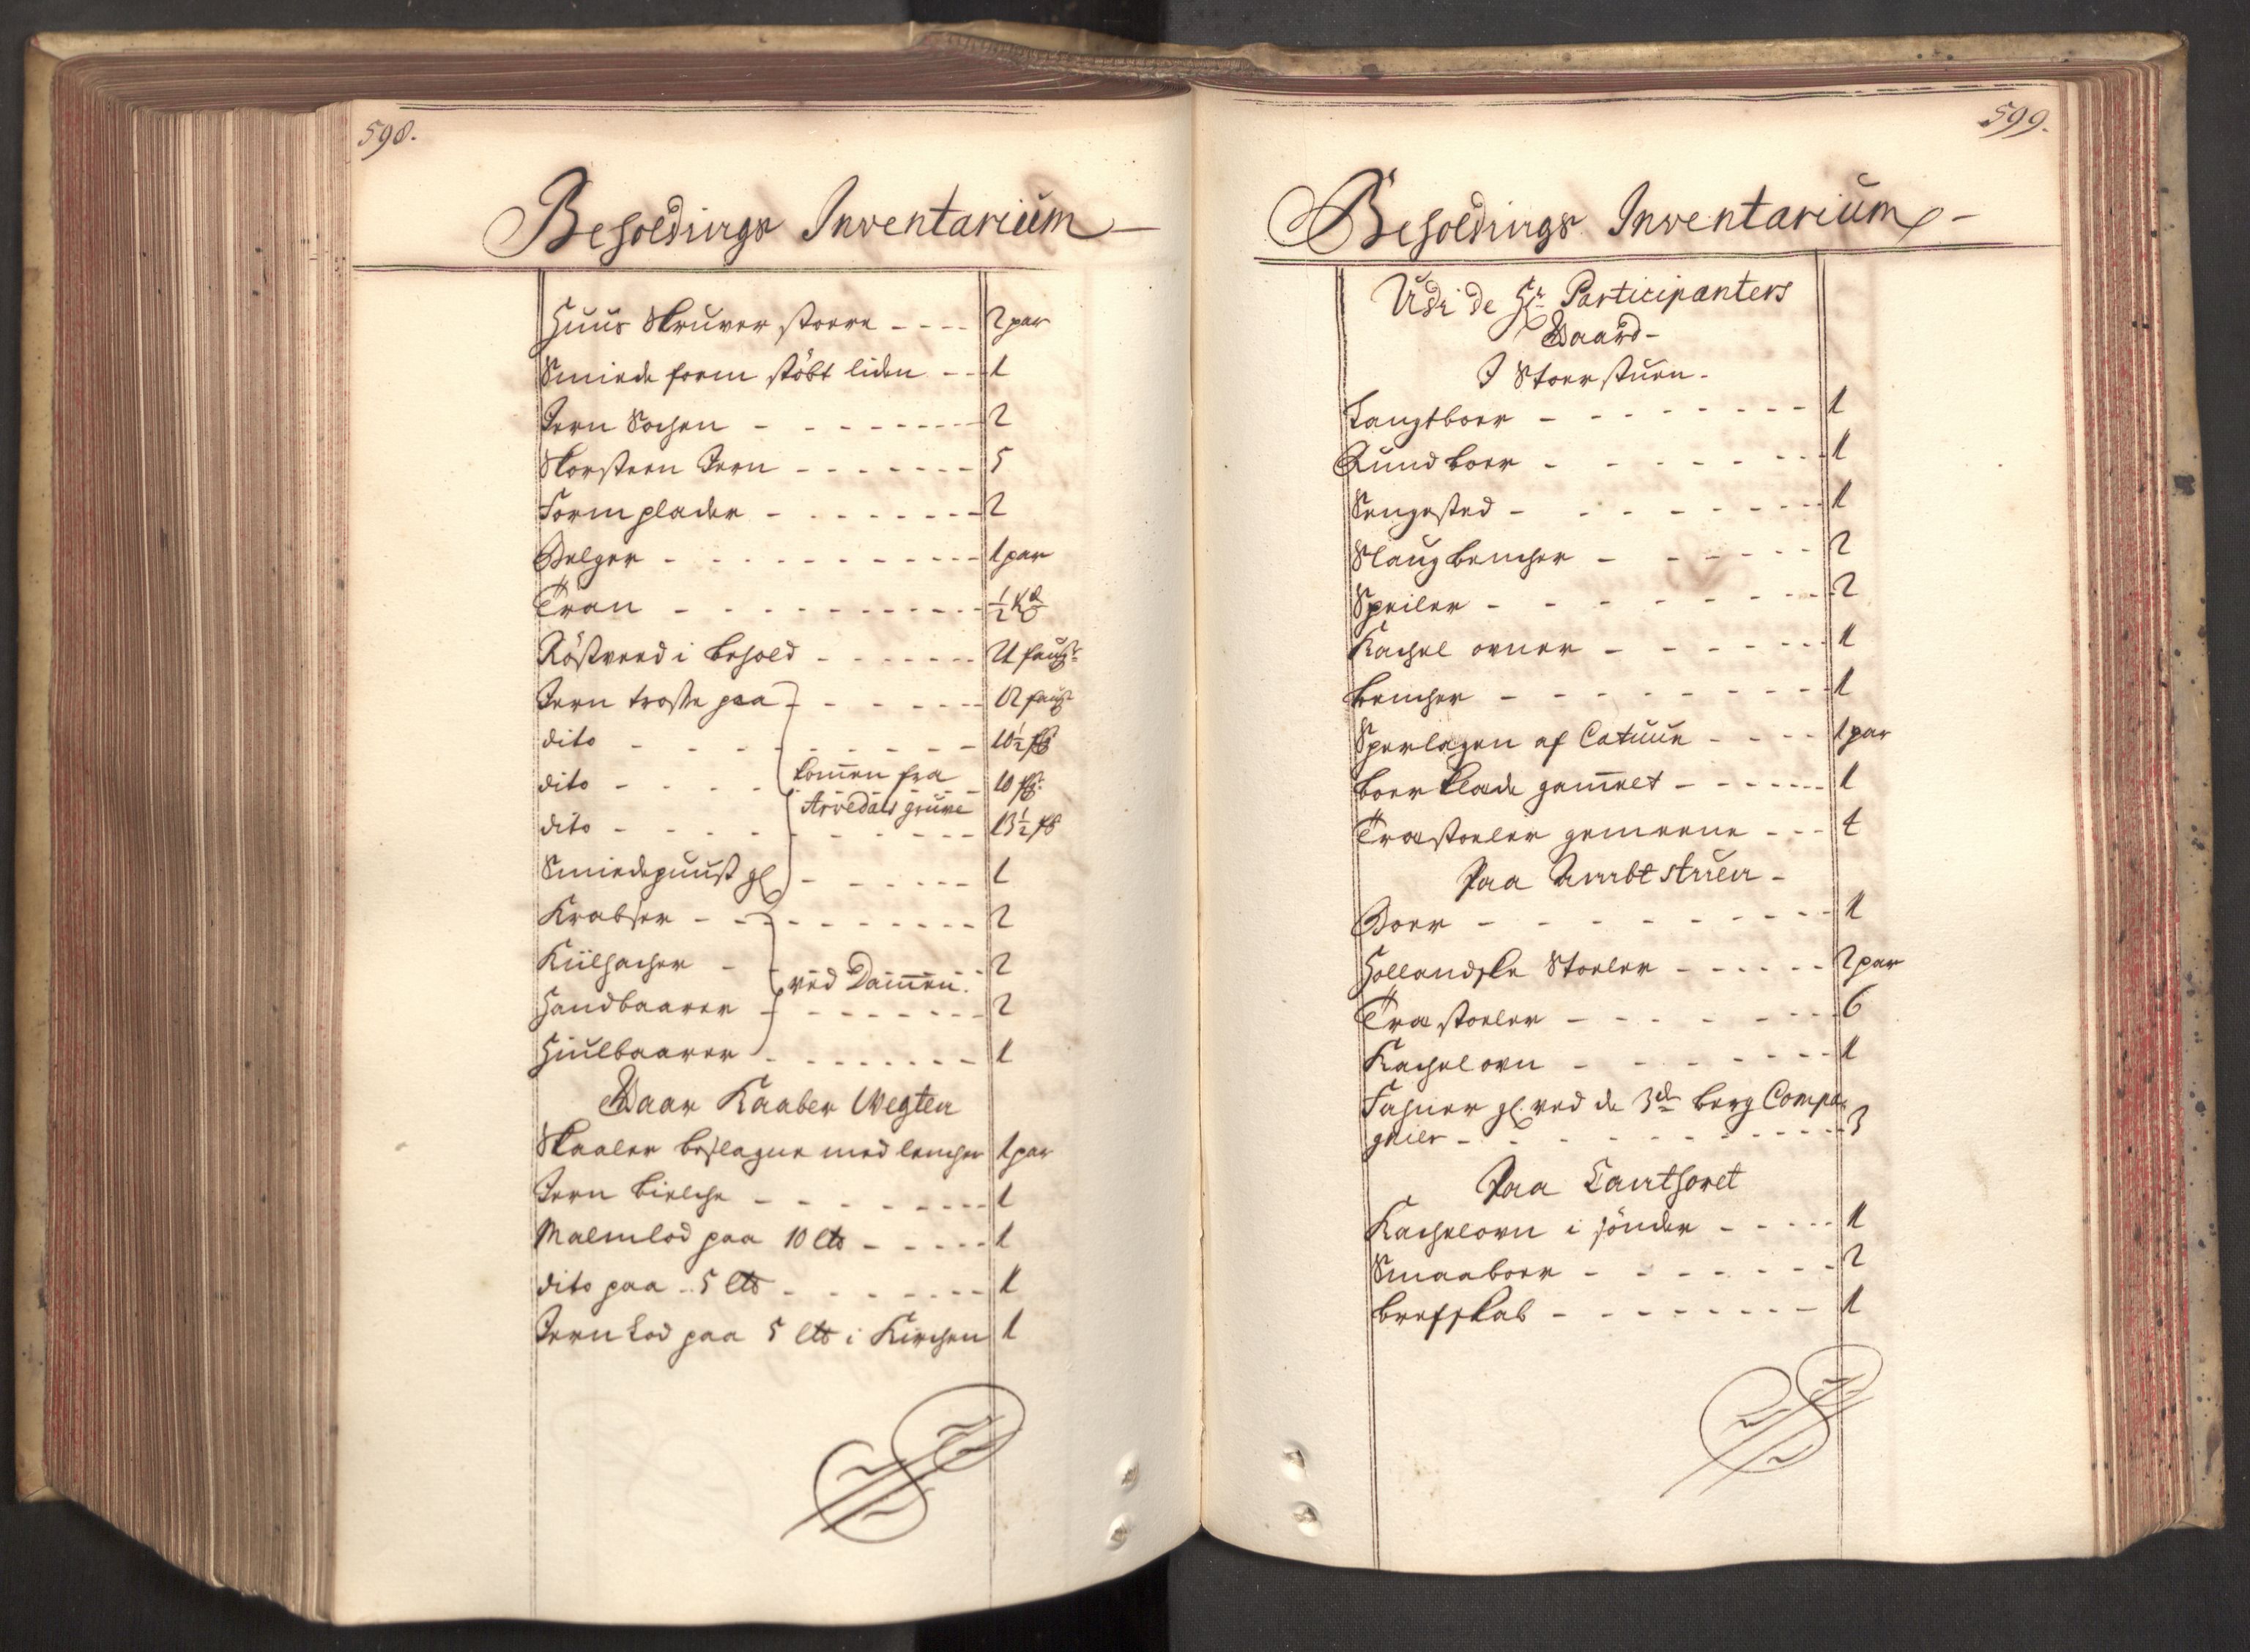 598.
Beholdings Inventarium
Huus Skruver stoere - - - - 2 par
Smiede form støbt liden - - 1
Jern Sochen - - - - - - - - 2
Skorsteen Jern - - - - - - - 5
Formplader - - - - - - - 2
Belger - - - - - - - - - - - 1 par
Tran - - - - - - - - - - ½
Röstveed i behold - - - - - - -
Jern trosse paa - - - - - - 12 faug
dito - - - - - - - - - 10½
dito - - - - komen fra - 10
Arvedals gruve
dito - - - - - - - - - 13½
Smiedepuust gl - - - - - - 1
Krabser - - - - - - - - - - 2
Kiilhacher - - 2
ved Dammen.
Handbaarer - - - - - - - - 2
Hiulbaarer - - - - - - - - 1
Waar Kaaber Wegten
Skaaler beslagne med lencher 1 par
Jern bielche - - - - - - - 1
Malmlod paa 10 - - - - - 1
dito paa 5 - - - - - - - 1
Jern Lod paa 5 i Kirchen 1
599.
Beholdings Inventarium
Udi de Hr Participanters
Gaard -
I Stoerstuen -
Langtboer - - - - - - - - 1
Rund boer - - - - - - - - 1
Sengested - - - - - - - - 1
Slaugbencher - - - - - - 2
Speiler - - - - - - - - 2
Kachel ovner - - - - - - 1
bencher - - - - - - - - - 1
Sperlagen af Catuun - - - - 1 par
boer klæde gammelt - - - - - - 1
Træstoeler gemeene - - - 4
Paa Ambtstuen -
Boer - - - - - - - - - 1
Hollandske Stoeler - - - - - 2 par
Træstoeler - - - - - - - 6
Kachelovn - - - - - - - - 1
Fahner gl. ved de 3de berg Compa-
gnier - - - - - - - - - - 3
Paa Canthoret
Kachelovn i sönder - - - - - 1
Smaaboer - - - - - - - 2
brefskab - - - - - - - - 1